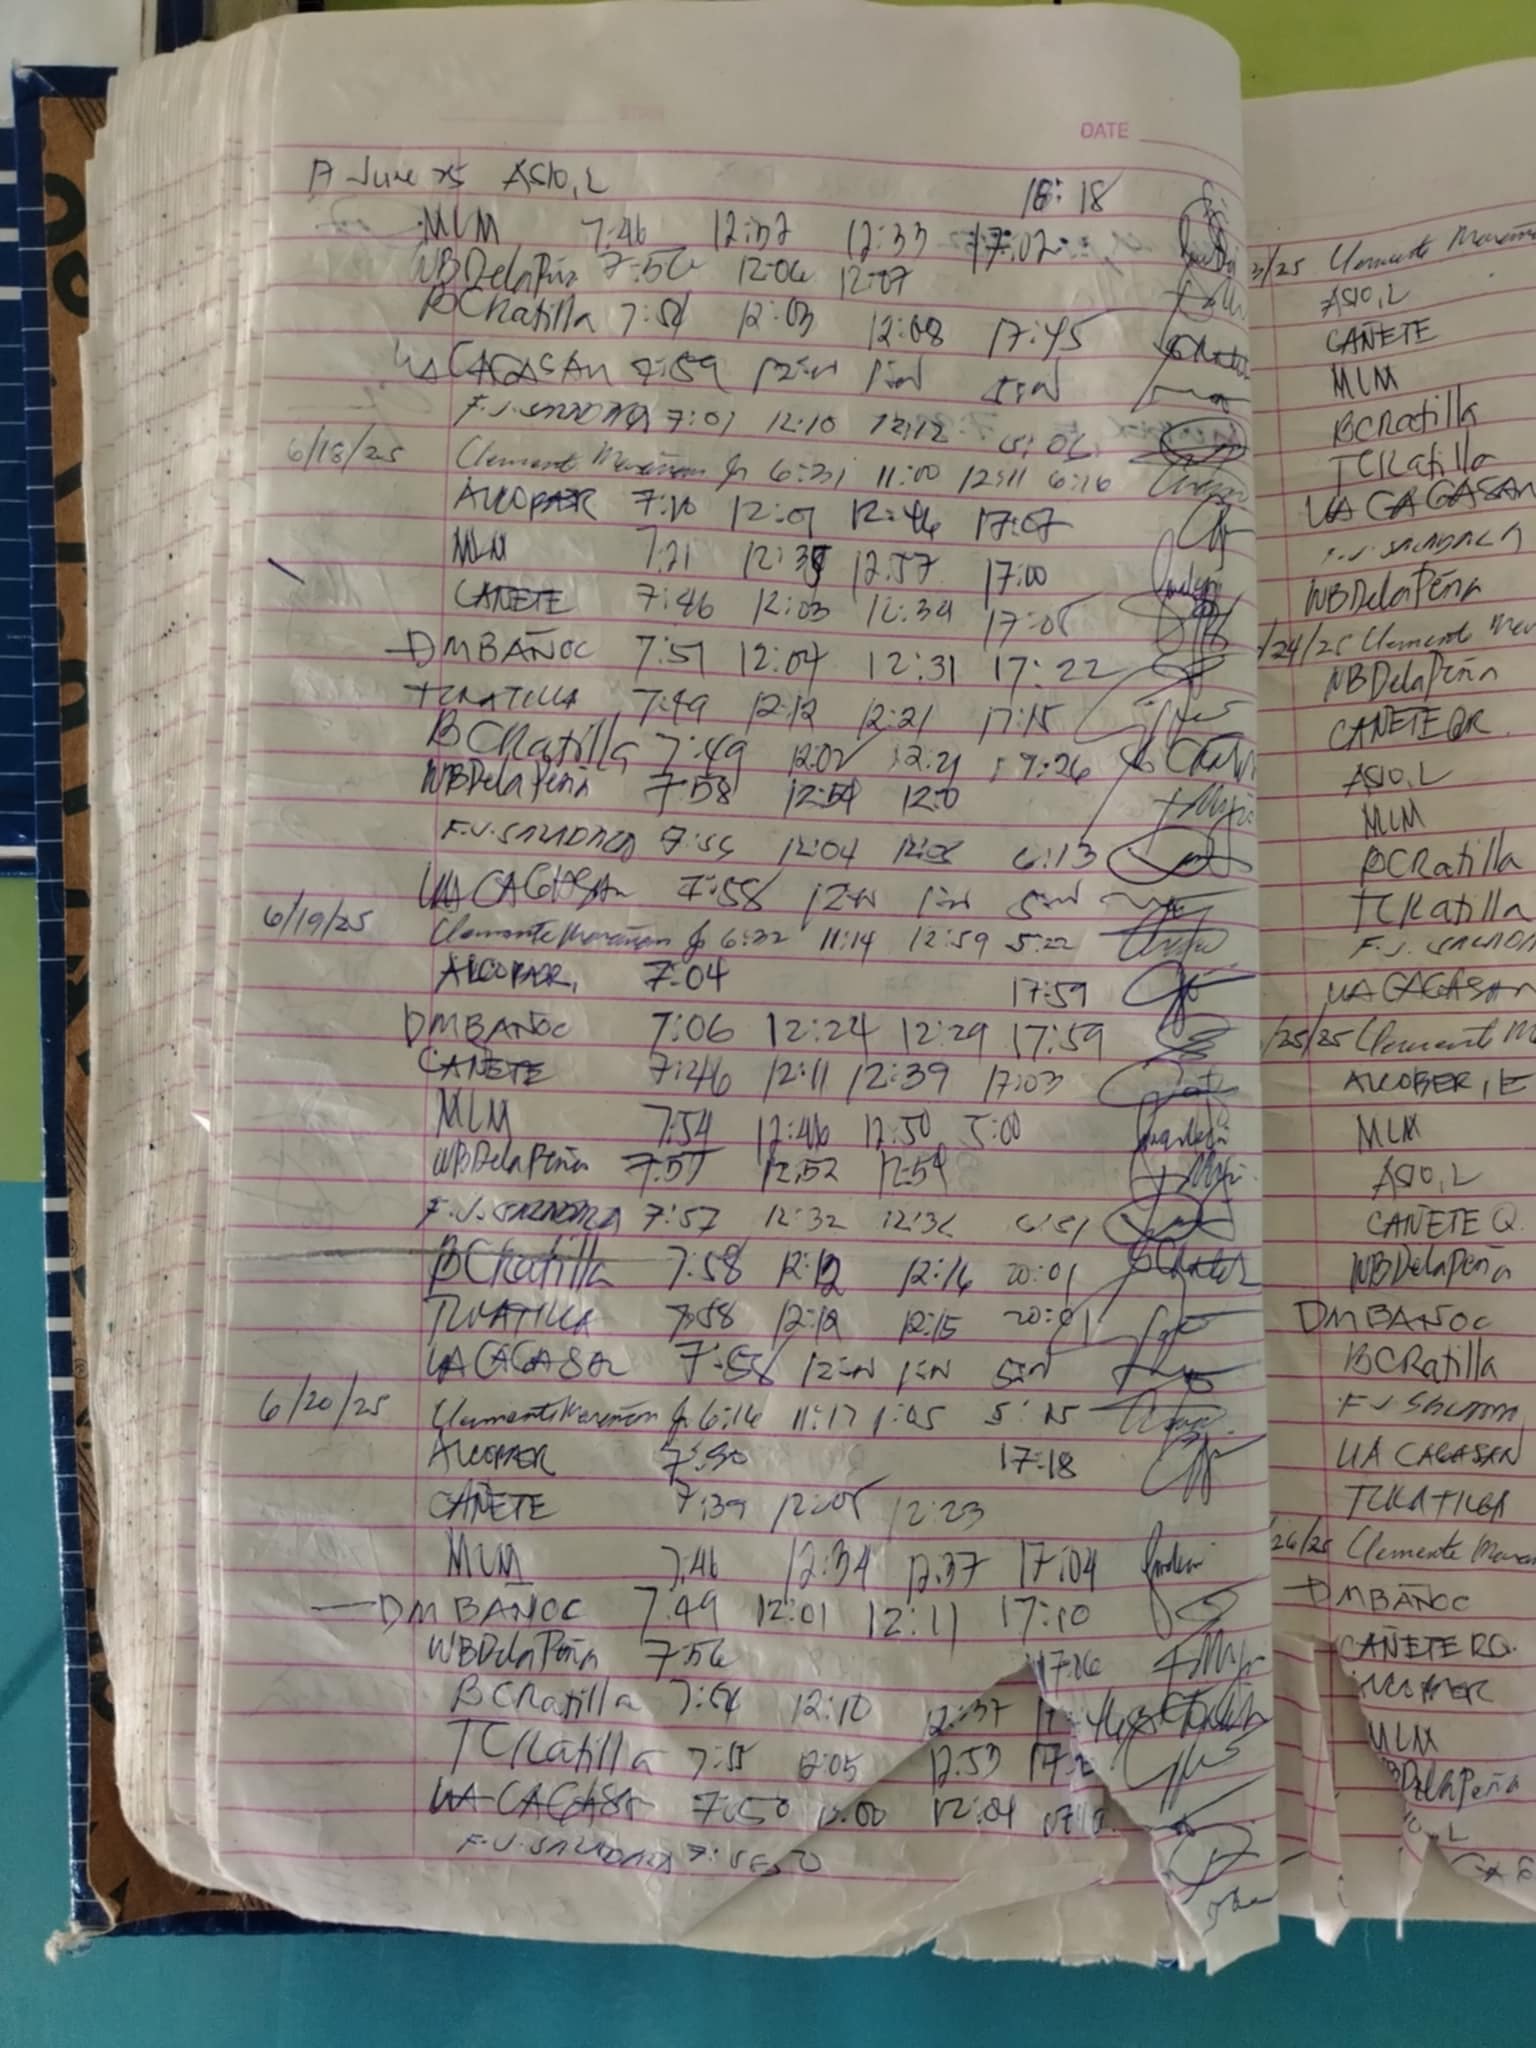 DATE
17 June 25 ASIO, L 18:18
MLM 7:46 12:32 12:33 17:02
WBDelaPeña 7:56 12:06 12:07
BCRatilla 7:58 12:03 12:08 17:45
UA CAGASAN 7:59 12:N 1:N 5:N
F.J. SALADAGA 7:01 12:10 12:12
6/18/25 Clemente Jr 6:31 11:00 12:11 6:16
ALCOBER 7:10 12:01 12:46 17:07
MLM 7:21 12:57 17:00
CAÑETE 7:46 12:03 12:34 17:05
DMBAÑOC 7:51 12:04 12:31 17:22
TCRATILLA 7:49 12:12 12:21 17:15
BCRatilla 7:49 12:02 12:21 17:26
WBDelaPeña 7:58 12:54
F.J. SALADAGA 7:55 12:04 12:05 6:13
UA CAGASAN 7:58 12:N 1:N 5:N
6/19/25 Clemente Jr 6:32 11:14 12:59 5:22
ALCOBER, 7:04 17:59
DMBAÑOC 7:06 12:24 12:29 17:59
CAÑETE 7:46 12:11 12:39 17:03
MLM 7:54 12:46 12:50 5:00
WBDelaPeña 7:57 12:52 12:54
F.J. SALADAGA 7:57 12:32 12:36 6:51
BCRatilla 7:58 12:12 12:16 20:01
TCRATILLA 7:58 12:12 12:15 20:01
UA CAGASAN 7:58 12:N 1:N 5:N
6/20/25 Clemente Jr 6:16 11:17 1:05 5:15
ALCOBER 7:30 17:18
CAÑETE 7:39 12:05 12:23
MLM 7:46 12:34 12:37 17:04
DMBAÑOC 7:49 12:01 12:11 17:10
WBDelaPeña 7:56 17:06
BCRatilla 7:54 12:10 12:37 17:46
TCRatilla 7:55 12:05 12:53
UA CAGASAN 7:50 12:00 12:04
F.J. SALADAGA
3/25 Clemente
ASIO, L
CAÑETE
MLM
BCRatilla
TCRatilla
UA CAGASAN
F.J. SALADAGA
WBDelaPeña
/24/25 Clemente
WBDelaPeña
CAÑETE QR
ASIO, L
MLM
BCRatilla
TCRatilla
F.J. SALADA
UA CAGASAN
/25/25 Clemente
ALCOBER, E
MLM
ASIO, L
CAÑETE Q.
WBDelaPeña
DMBAÑOC
BCRatilla
F.J. SALADA
UA CAGASAN
TCRATILLA
/26/25 Clemente
DMBAÑOC
CAÑETE RQ.
ALCOBER
MLM
BDelaPeña